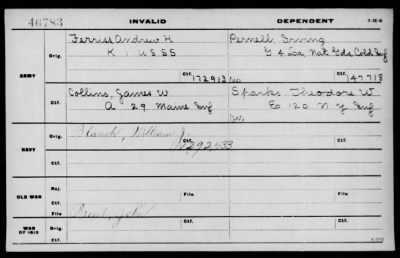 46783 INVALID DEPENDENT
Ferriss Andrew H Pernell, Irving
ARMY Orig. K 1 U S S S G 4 Nat Gds Cold Inf
172913 147718
Collins, James W Sparks, Theodore W
Ctf. A 29 Maine Inf E 120 N Y Inf
NAVY Orig. William J.
Ctf. 292433 Ctf.
OLD WAR Rej. File
Ctf. File
File
WAR OF 1812 Orig. Orig.
Ctf. Ctf.